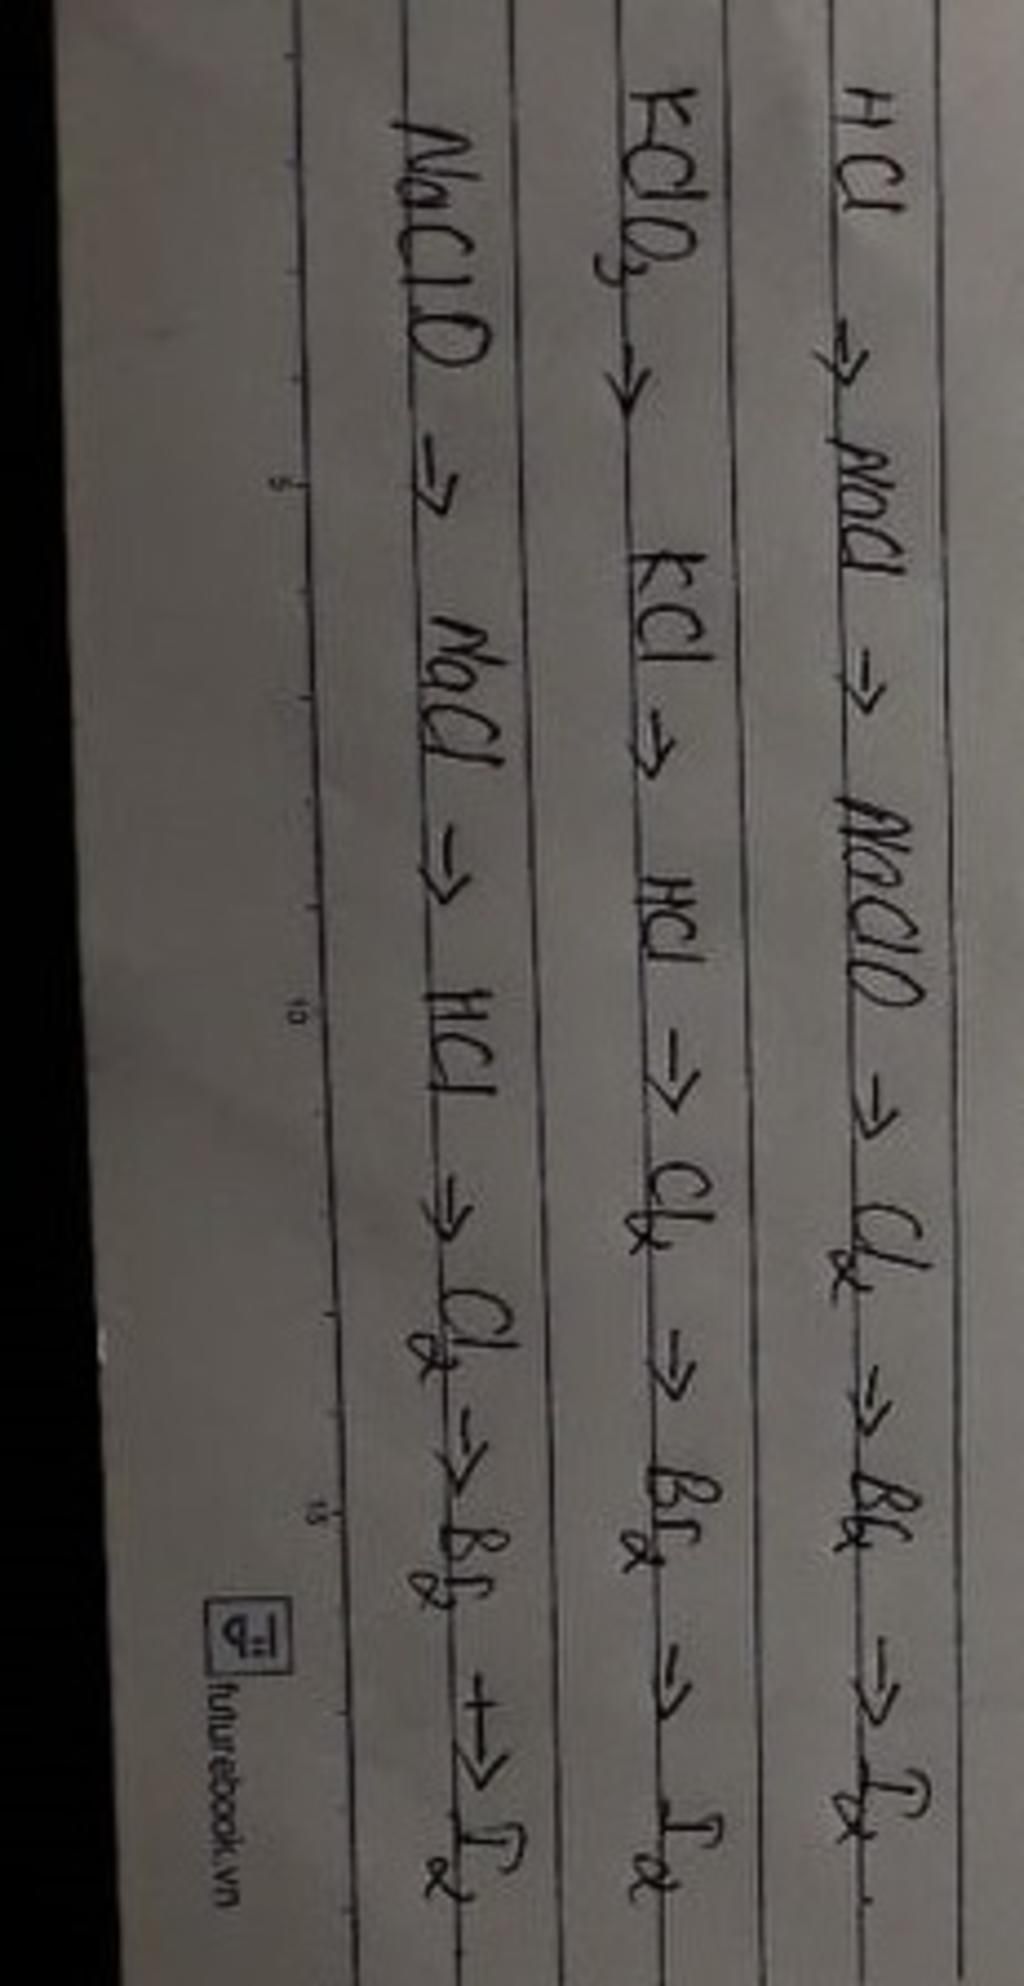 HCl → NaCl → NaClO → Cl₂ → Br₂ → I₂.
KClO₃ → KCl → HCl → Cl₂ → Br₂ → I₂
NaClO → NaCl → HCl → Cl₂ → Br₂ → I₂
5 10 15
futurebook.vn